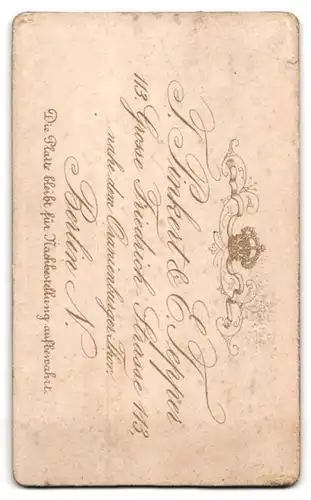 F. Pinkert & C. Seppei
113, Grosse Friedrich Strasse 113,
nahe dem Oranienburger Thor.
Berlin N.
Die Platte bleibt für Nachbestellung aufbewahrt.